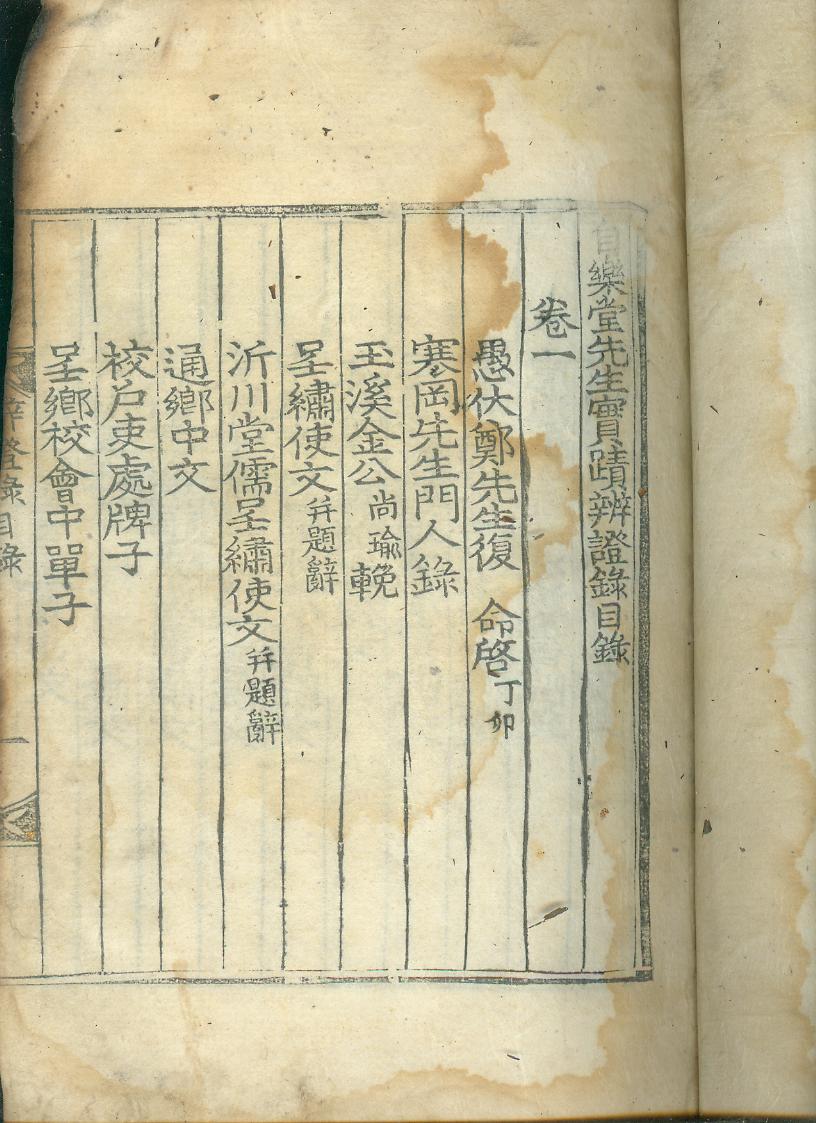 自樂堂先生實蹟辨證錄目錄
卷一
愚伏鄭先生復 命啓丁卯
寒岡先生門人錄
玉溪金公尚瑜輓
呈繡使文幷題辭
沂川堂儒呈繡使文幷題辭
通鄉中文
校戶吏處牌子
呈鄉校會中單子
辨證錄目錄 一